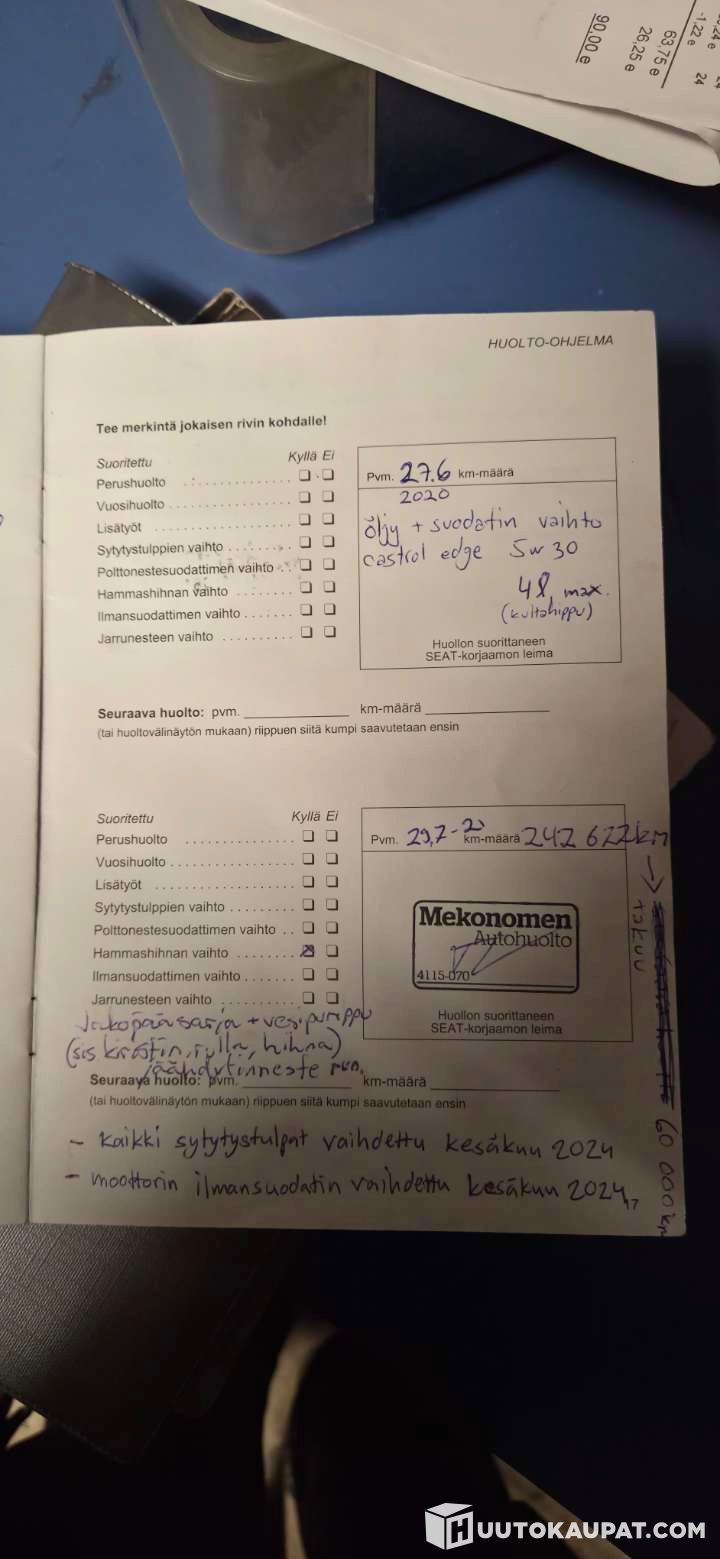 -1,22 e 24
63,75 e
26,25 e
90,00 e
HUOLTO-OHJELMA
Tee merkintä jokaisen rivin kohdalle!
Suoritettu Kyllä Ei
Perushuolto
Vuosihuolto
Lisätyöt
Sytytystulppien vaihto
Polttonestesuodattimen vaihto
Hammashihnan vaihto
Ilmansuodattimen vaihto
Jarrunesteen vaihto
Pvm. 27.6 km-määrä
2020
öljy + suodatin vaihto
castrol edge 5w30
4 l max.
(kultahippu)
Huollon suorittaneen
SEAT-korjaamon leima
Seuraava huolto: pvm. km-määrä
(tai huoltovälinäytön mukaan) riippuen siitä kumpi saavutetaan ensin
Suoritettu Kyllä Ei
Perushuolto
Vuosihuolto
Lisätyöt
Sytytystulppien vaihto
Polttonestesuodattimen vaihto
Hammashihnan vaihto
Ilmansuodattimen vaihto
Jarrunesteen vaihto
Pvm. 29,7-20 km-määrä 242 622 km
Mekonomen
Autohuolto
4115-070
Huollon suorittaneen
SEAT-korjaamon leima
takuu
60 000 km
Jakopääsarja + vesipumppu
(sis kiristin, rulla, hihna)
jäähdytinneste
Seuraava huolto: pvm. km-määrä
(tai huoltovälinäytön mukaan) riippuen siitä kumpi saavutetaan ensin
- kaikki sytytystulpat vaihdettu kesäkuu 2024
- moottorin ilmansuodatin vaihdettu kesäkuu 2024
17
HUUTOKAUPAT.COM